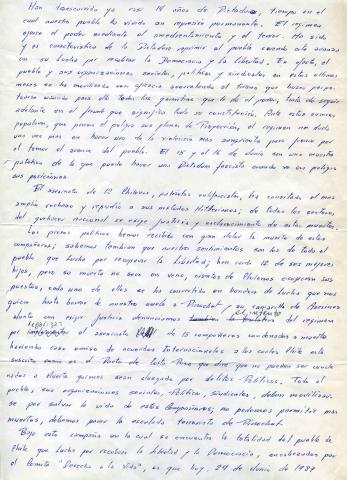 Han transcurrido ya casi 14 años de Dictadura, tiempo en el
cual nuestro pueblo ha vivido en represión permanente. El régimen
ejerce el poder mediante el amedrentamiento y el terror. Ha sido
y es característica de la Dictadura oprimir al pueblo cuando este avanza
en su lucha por recobrar la Democracia y la libertad. En efecto, el
pueblo y sus organizaciones sociales, políticas y sindicales en estos últimos
meses se ha movilizado con eficacia al tirano que busca
adelante en el fraude que significa toda su constitución. Ante estos avances
populares, que ponen el peligro sus planes de Proyección, el régimen no dudó
una vez más en hacer uso de la violencia más para frenar por
el temor el avance del pueblo. El 15 y el 16 de Junio son una muestra
patética de lo que puede hacer una Dictadura fascista cuando ve en peligro
sus posiciones.
El asesinato de 12 Chilenos, patriotas rodriguistas, ha concitado el más
amplio rechazo y repudio a sus métodos Hitlerianos; de todos los sectores
del quehacer nacional se exige justicia y esclarecimiento de estas muertes.
Los presos políticos hemos recibido con gran dolor la muerte de estos
compañeros; sabemos también que nuestros sentimientos son los de todo el
pueblo que lucha por recuperar la libertad; han caído 12 de sus mejores
hijos, pero su muerte no será en vano, cientos de Chilenos ocuparán sus
puestos, cada uno de ellos se ha convertido en bandera de lucha que nos
guiará hasta borrar de nuestro suelo a Pinochet y su camarilla de Asesinos
Junto con exigir Justicia denunciamos el intento del régimen
por el asesinato de 15 compañeros condenados a muerte
haciendo caso omiso de acuerdos Internacionales a los cuales Chile está
suscrito como es el Pacto de Costa Rica que dice que no pueden ser conde
nados a Muerte quienes sean juzgados por delitos Políticos. Todo el
pueblo, sus organizaciones sociales, Política, sindicales, deben movilizar-
se por salvar la vida de estos Compañeros; no podemos permitir más
muertes, debemos parar la escalada terrorista de Pinochet.
Bajo esta campaña en la cual se encuentra la totalidad del pueblo de
Chile que lucha por recobrar la libertad y la Democracia, encabezados por
el Comité "Derecho a la Vida", es que hoy, 24 de Junio de 1987